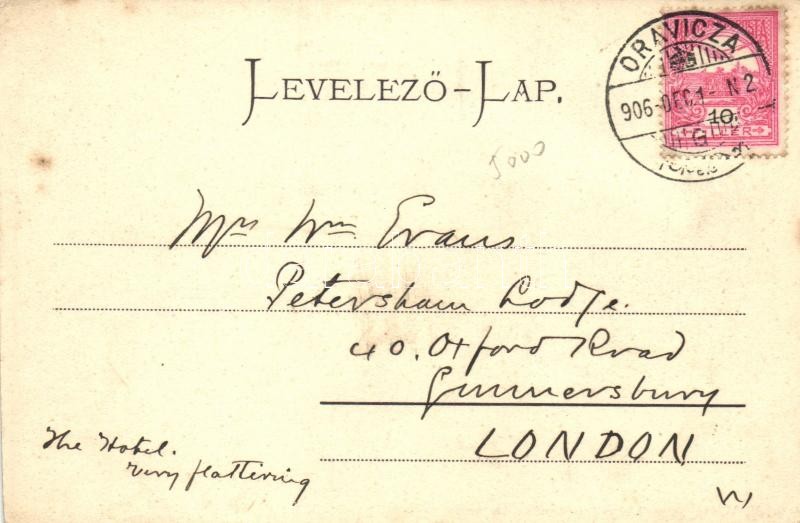 LEVELEZŐ-LAP.
ORAVICZA
906 DEC 1 N2
10
5000
Mrs Wm Evans
Petersham Lodge.
40. Oxford Road
Gunnersbury
LONDON
The Hotel.
Very flattering